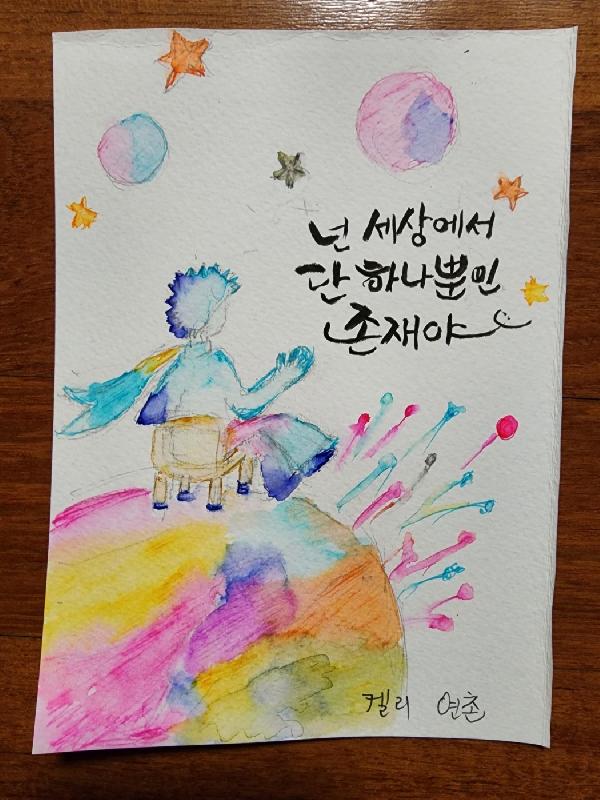 넌 세상에서
단 하나뿐인
존재야
켈리 연촌